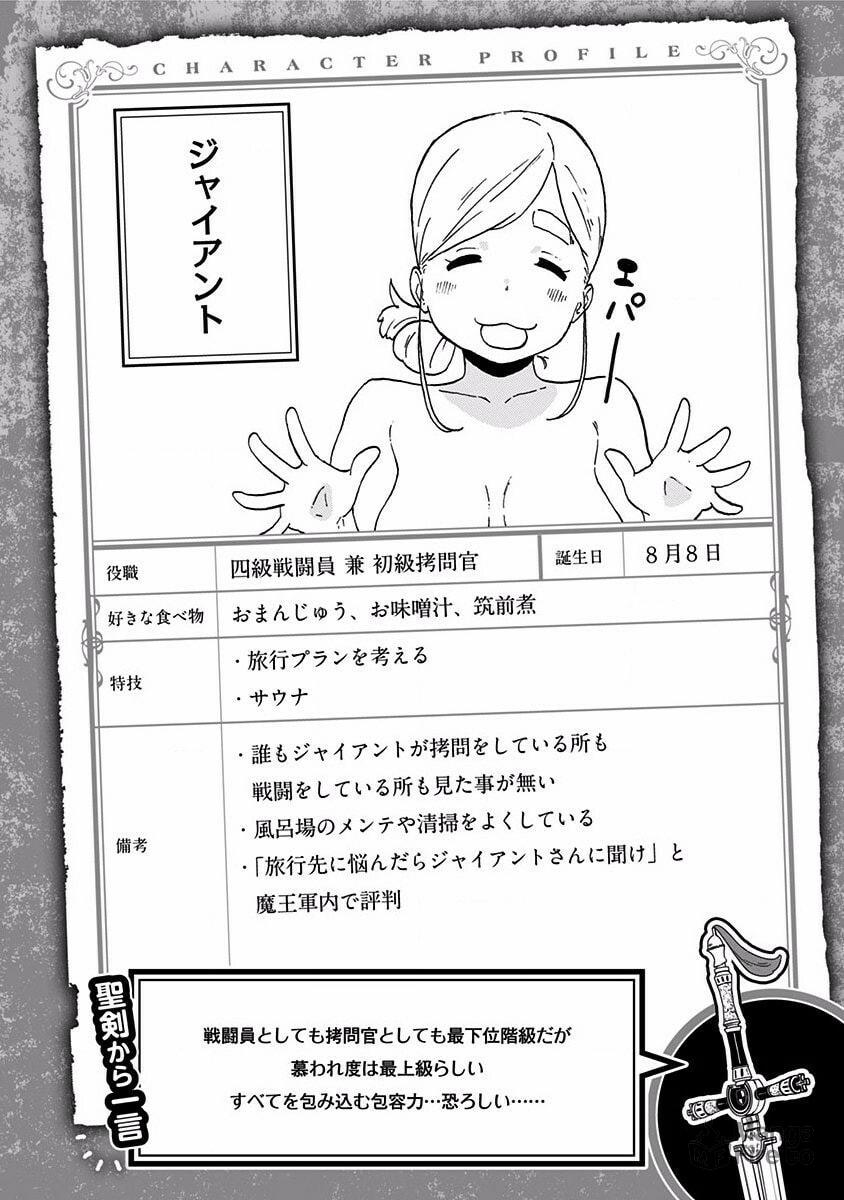 CHARACTER PROFILE
ジャイアント
エパー
役職
四級戦闘員 兼 初級拷問官
誕生日
8月8日
好きな食べ物
おまんじゅう、お味噌汁、筑前煮
特技
・旅行プランを考える
・サウナ
備考
・誰もジャイアントが拷問をしている所も
戦闘をしている所も見た事が無い
・風呂場のメンテや清掃をよくしている
・「旅行先に悩んだらジャイアントさんに聞け」と
魔王軍内で評判
聖剣から一言
戦闘員としても拷問官としても最下位階級だが
慕われ度は最上級らしい
すべてを包み込む包容力…恐ろしい……